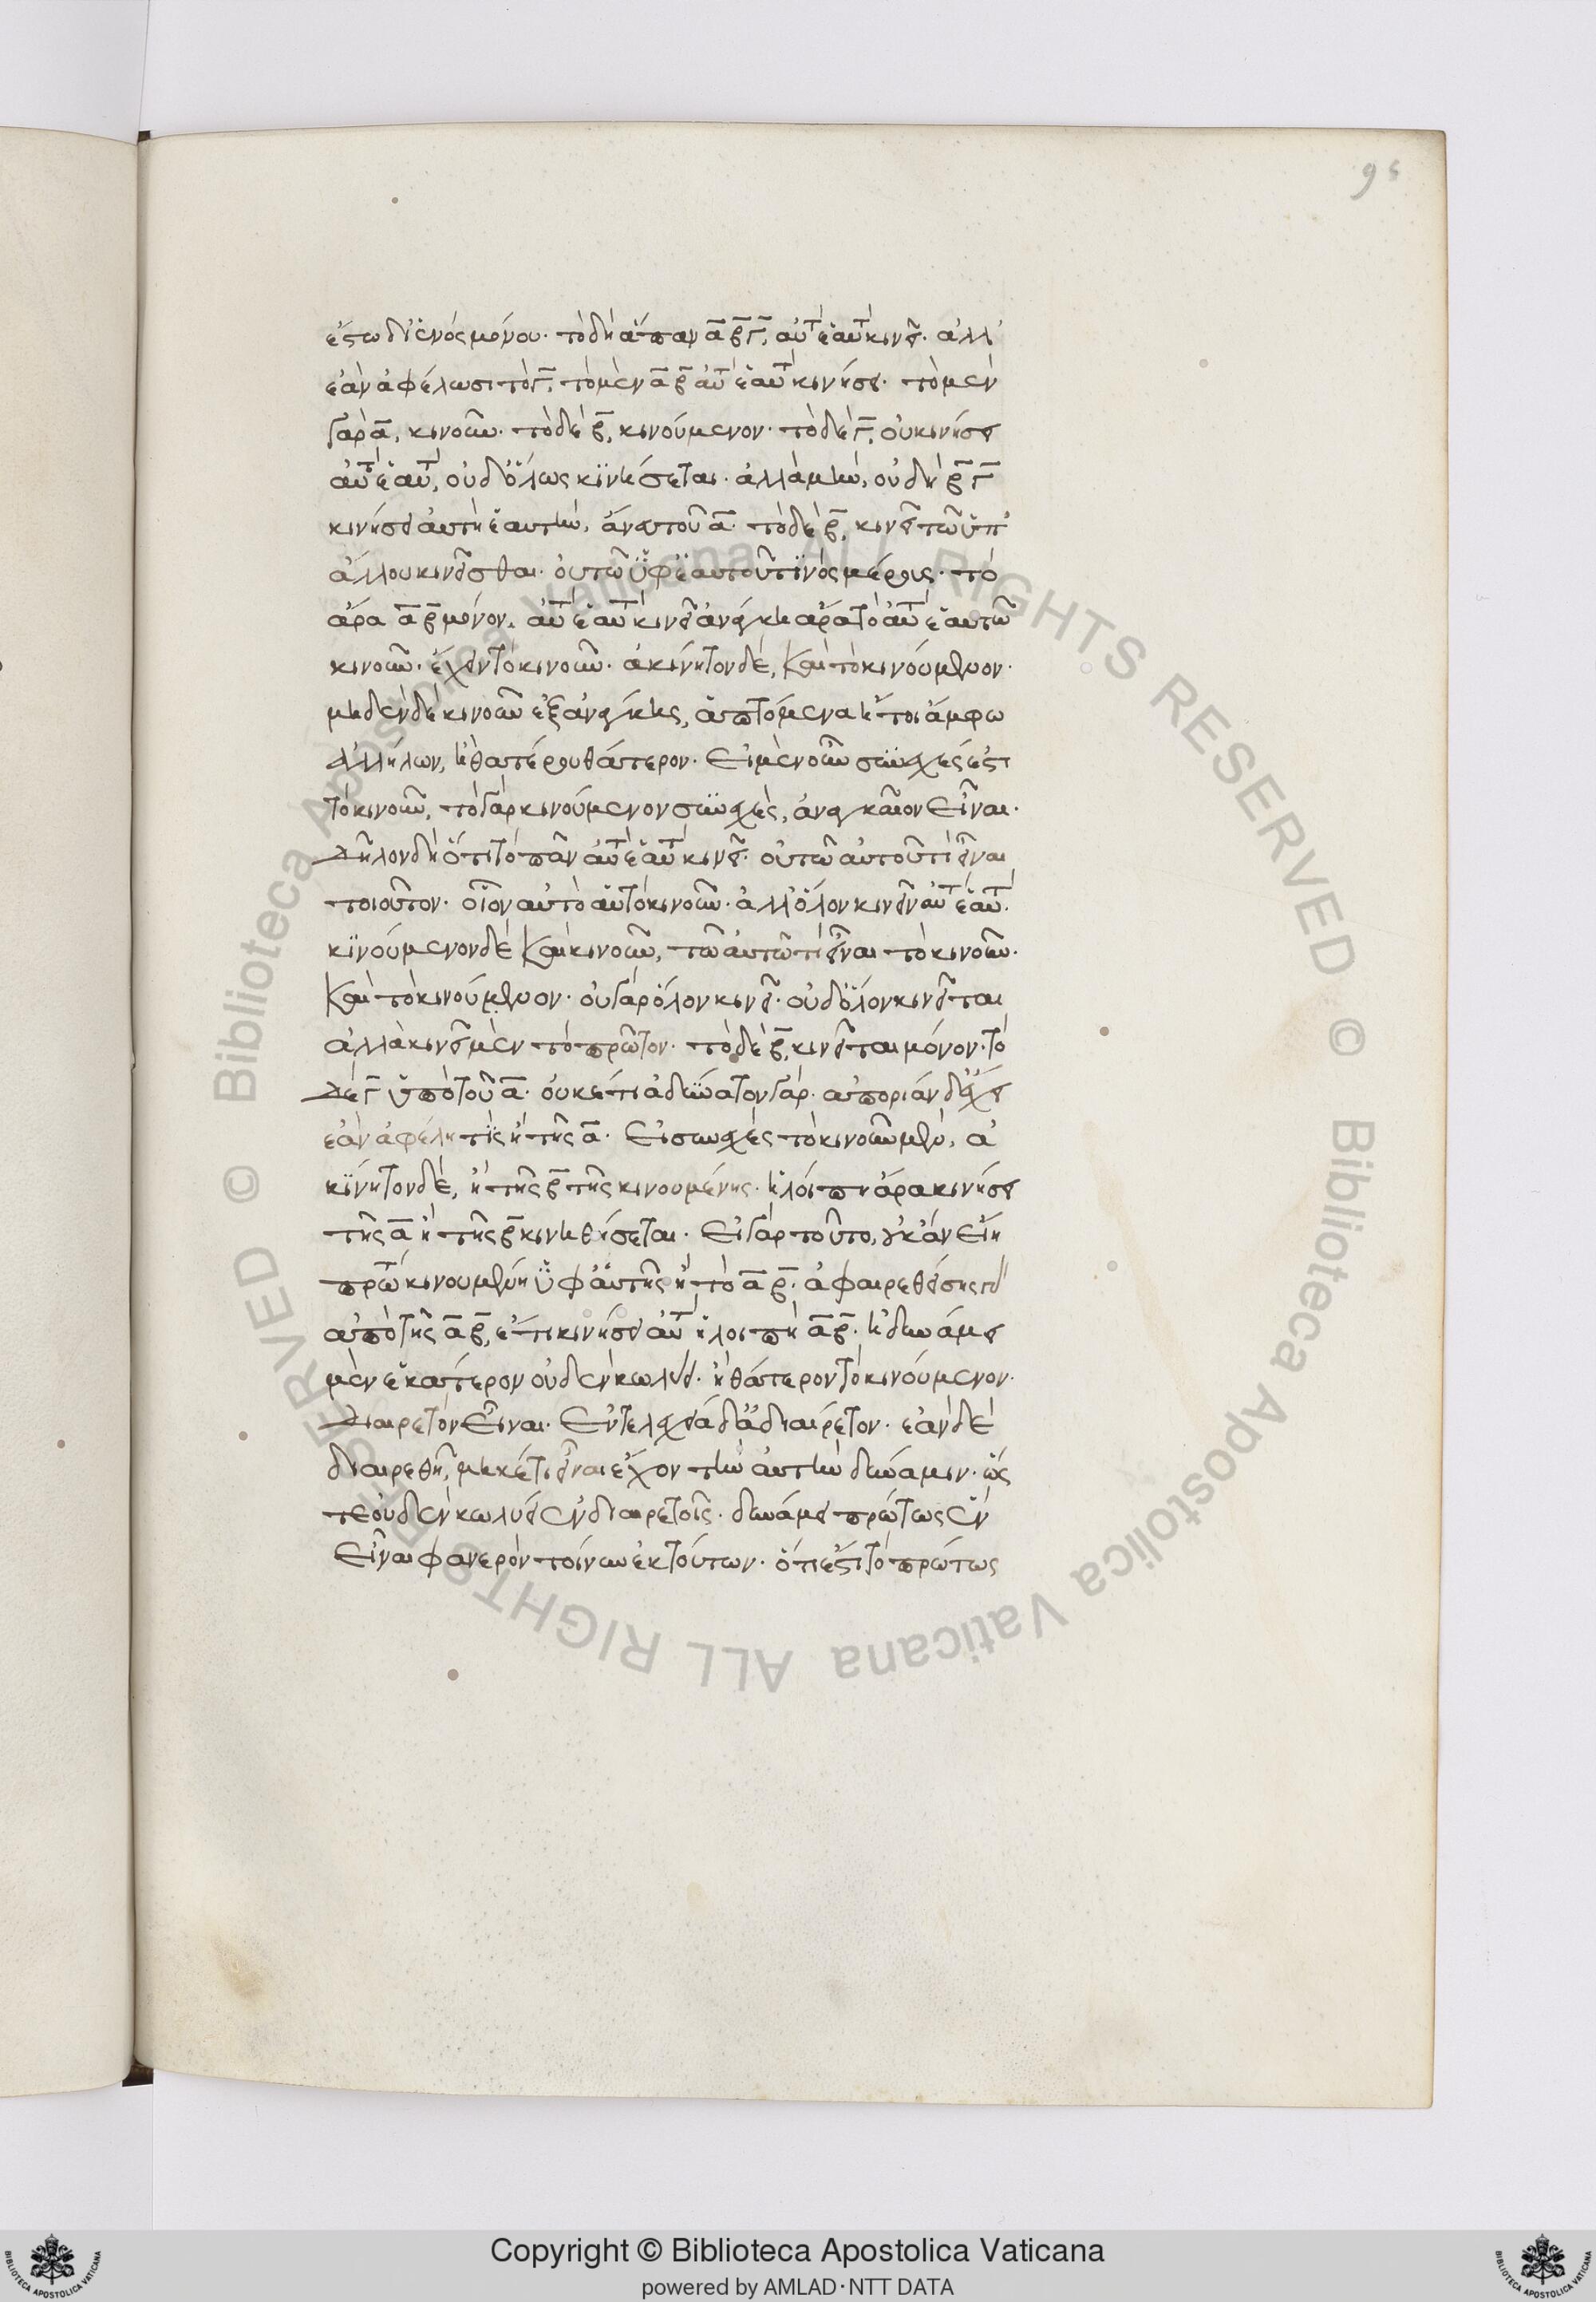 95
ἔστω δι' ἑνὸς μόνου· τὸ δὴ ἅπαν α β γ, αὐτὸ ἑαυτὸ κινεῖ· ἀλλ'
ἐὰν ἀφέλωσι τὸ γ, τὸ μὲν α β αὐτὸ ἑαυτὸ κινήσει· τὸ μὲν
γὰρ α, κινοῦν· τὸ δὲ β, κινούμενον· τὸ δὲ γ, οὐ κινήσει
αὐτὸ ἑαυτὸ, οὐδ' ὅλως κινήσεται· ἀλλὰ μὴν, οὐδ' ἡ β γ
κινήσει αὐτὴ ἑαυτὴν, ἄνευ τοῦ α· τὸ δὲ β, κινεῖ τῶ ὑπ'
ἄλλου κινεῖσθαι· οὐ τῶ ὑφ' ἑαυτοῦ τινὸς μέρους· τὸ
ἄρα α β μόνον, αὐτὸ ἑαυτὸ κινεῖ ἀνάγκη ἄρα τὸ αὐτὸ ἑαυτῶ
κινοῦν· ἔχειν τὸ κινοῦν· ἀκίνητον δὲ, καὶ τὸ κινούμενον·
μηδὲν δὲ κινοῦν ἐξ ἀνάγκης, ἁπτόμενα ἤτοι ἄμφω
ἀλλήλων, ἢ θατέρου θάτερον· Εἰ μὲν οὖν συνεχές ἐστι
τὸ κινοῦν, τὸ γὰρ κινούμενον συνεχὲς, ἀναγκαῖον εἶναι·
Δῆλον δὴ ὅτι τὸ πᾶν αὐτὸ ἑαυτὸ κινεῖ· οὐ τῶ αὐτοῦ τί εἶναι
τοιοῦτον· οἷον αὐτὸ αὑτὸ κινοῦν· ἀλλ' ὅλον κινεῖν αὐτὸ ἑαυτὸ·
κινούμενον δὲ καὶ κινοῦν, τῶ αὐτῶ τὶ εἶναι τὸ κινοῦν·
καὶ τὸ κινούμενον· οὐ γὰρ ὅλον κινεῖ· οὐδ' ὅλον κινεῖται
ἀλλὰ κινεῖ μὲν τὸ πρῶτον· τὸ δὲ β, κινεῖται μόνον· τὸ
δὲ γ ὑπὸ τοῦ α· οὐκέτι ἀδύνατον γάρ· ἀπορίαν δ' ἔχει
ἐὰν ἀφέλη τὶς ἢ τῆς α· Εἰ συνεχὲς τὸ κινοῦν μὲν, ἀ
κίνητον δὲ, ἢ τῆς β τῆς κινουμένης· ἡ λοιπὴ ἄρα κινήσει
τῆς α ἢ τῆς β κινηθήσεται· Εἰ γὰρ τοῦτο, οὐκ ἂν εἴη
πρώτη κινουμένη ὑφ' αὑτῆς ἢ τὸ α β· ἀφαιρεθείσης γὰρ
ἀπὸ τῆς α β, ἔτι κινήσει αὐτὴν ἡ λοιπὴ α β· ἢ δυνάμει
μὲν ἑκάτερον οὐδὲν κωλύει· ἢ θάτερον τὸ κινούμενον·
Διαιρετὸν εἶναι· Ἐντελεχεία δ' ἀδιαίρετον· ἐὰν δὲ
διαιρεθῆ, μηκέτι εἶναι ἔχον τὴν αὐτὴν δύναμιν· ὥς
τε οὐδὲν κωλύει ἐν διαιρετοῖς· δυνάμει πρώτως ἓν
Εἶναι φανερὸν τοίνυν ἐκ τούτων· ὅτι ἔστι τὸ πρώτως
Copyright © Biblioteca Apostolica Vaticana
powered by AMLAD·NTT DATA